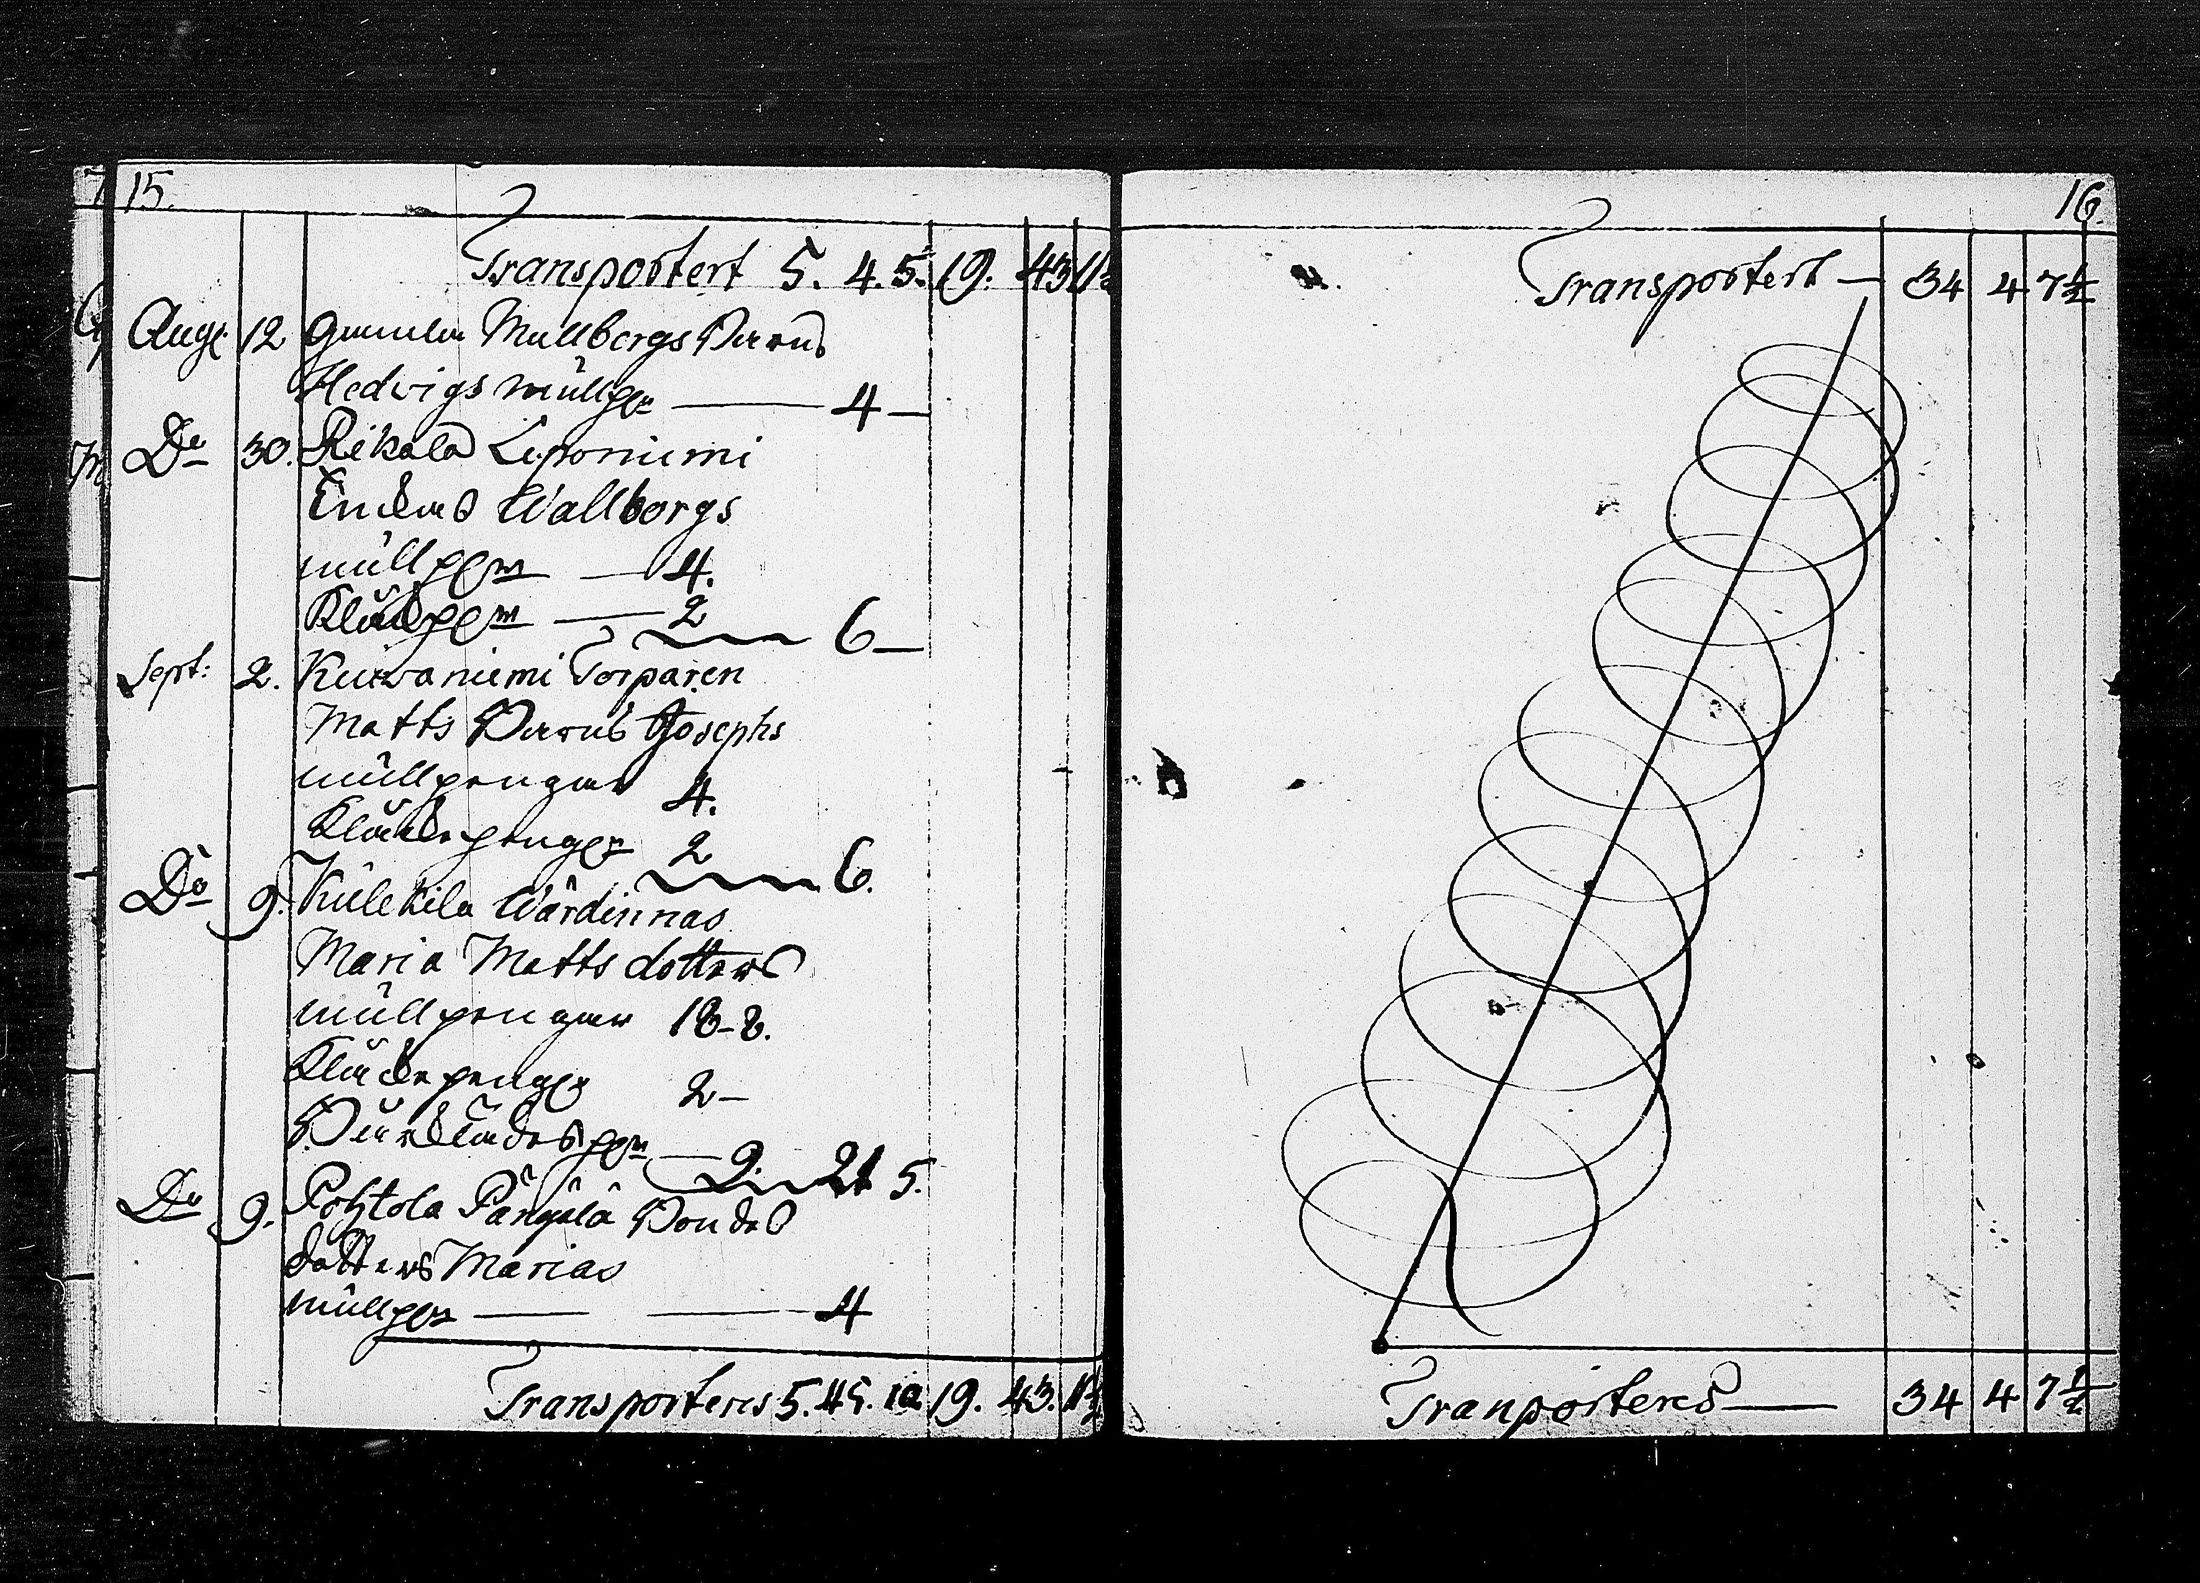 15.
Transportert 5. 4. 5. 19. 43 11½
Aug. 12 Gamla Mullbergs Barns
Hedvigs mullpgr — 4 —
Do 30. Rikala Leponiemi
Enckans Wallborgs
mullpgr — 4.
Klåckpgr — 2
6 —
Sept: 2. Kurvaniemi Torparen
Matts Barns Josephs
mullpengar 4.
Klåckepengar 2
6.
Do 9. Kulekila Wärdinnas
Maria Matts dotters
mullpengar 18-8.
Klåckepengar 2 —
Bårklädespgr — 9. 21 5.
Do 9. Pohtola Pängälä Bondes
dotters Marias
mullpgr — 4
Transporteres 5. 45. 10. 19. 43. 11½
16.
Transportert — 34 4 7½
Tranporteres — 34 4 7½